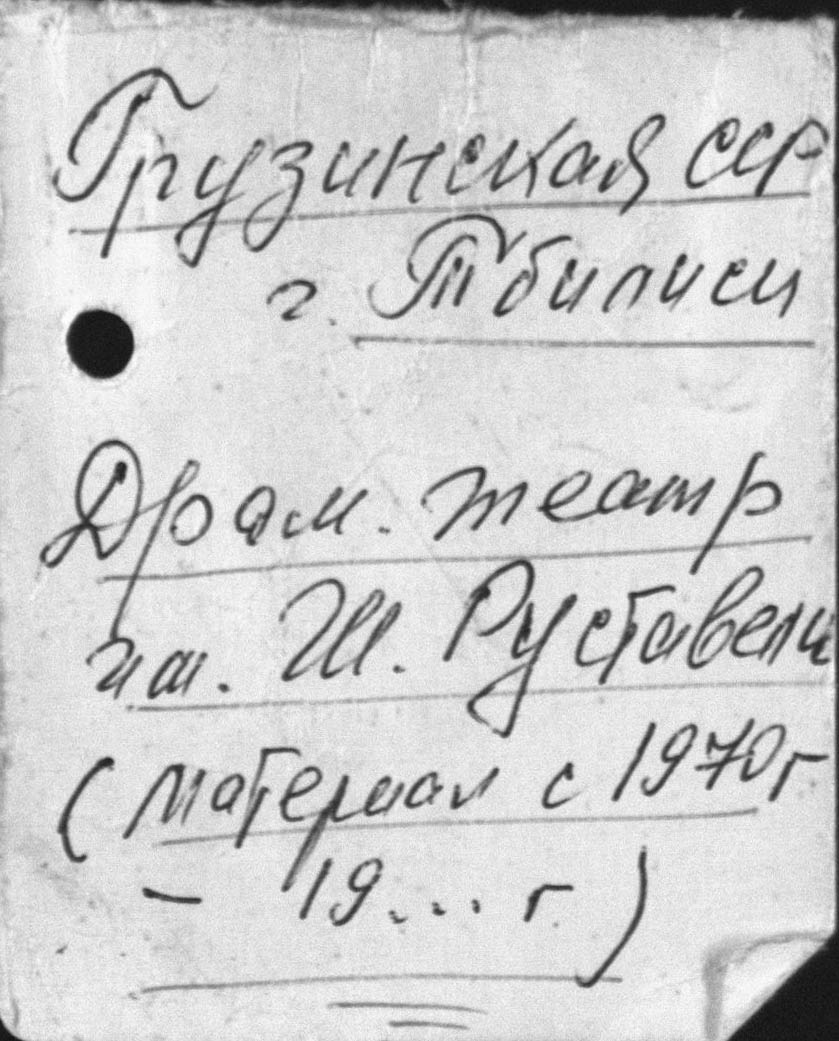 Грузинская ССР
г. Тбилиси
Драм. театр
им. Ш. Руставели
(материал с 1970 г
– 19.... г)